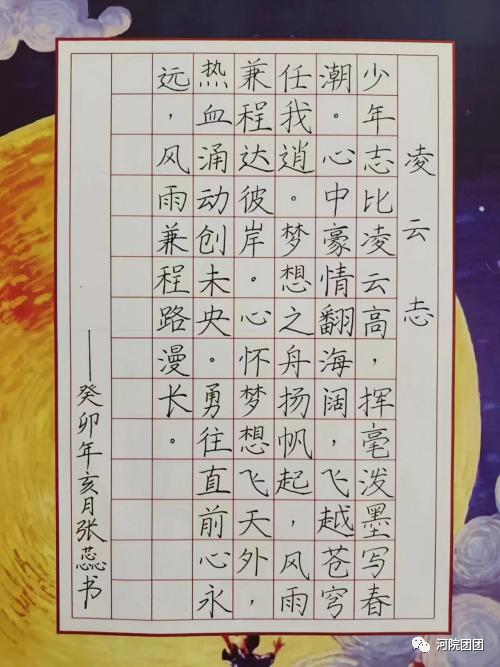 凌云志
少年志比凌云高，挥毫泼墨写春
潮。心中豪情翻海阔，飞越苍穹
任我逍。梦想之舟扬帆起，风雨
兼程达彼岸。心怀梦想飞天外，
热血涌动创未央。勇往直前心永
远，风雨兼程路漫长。
——癸卯年亥月张蕊书
河院团团